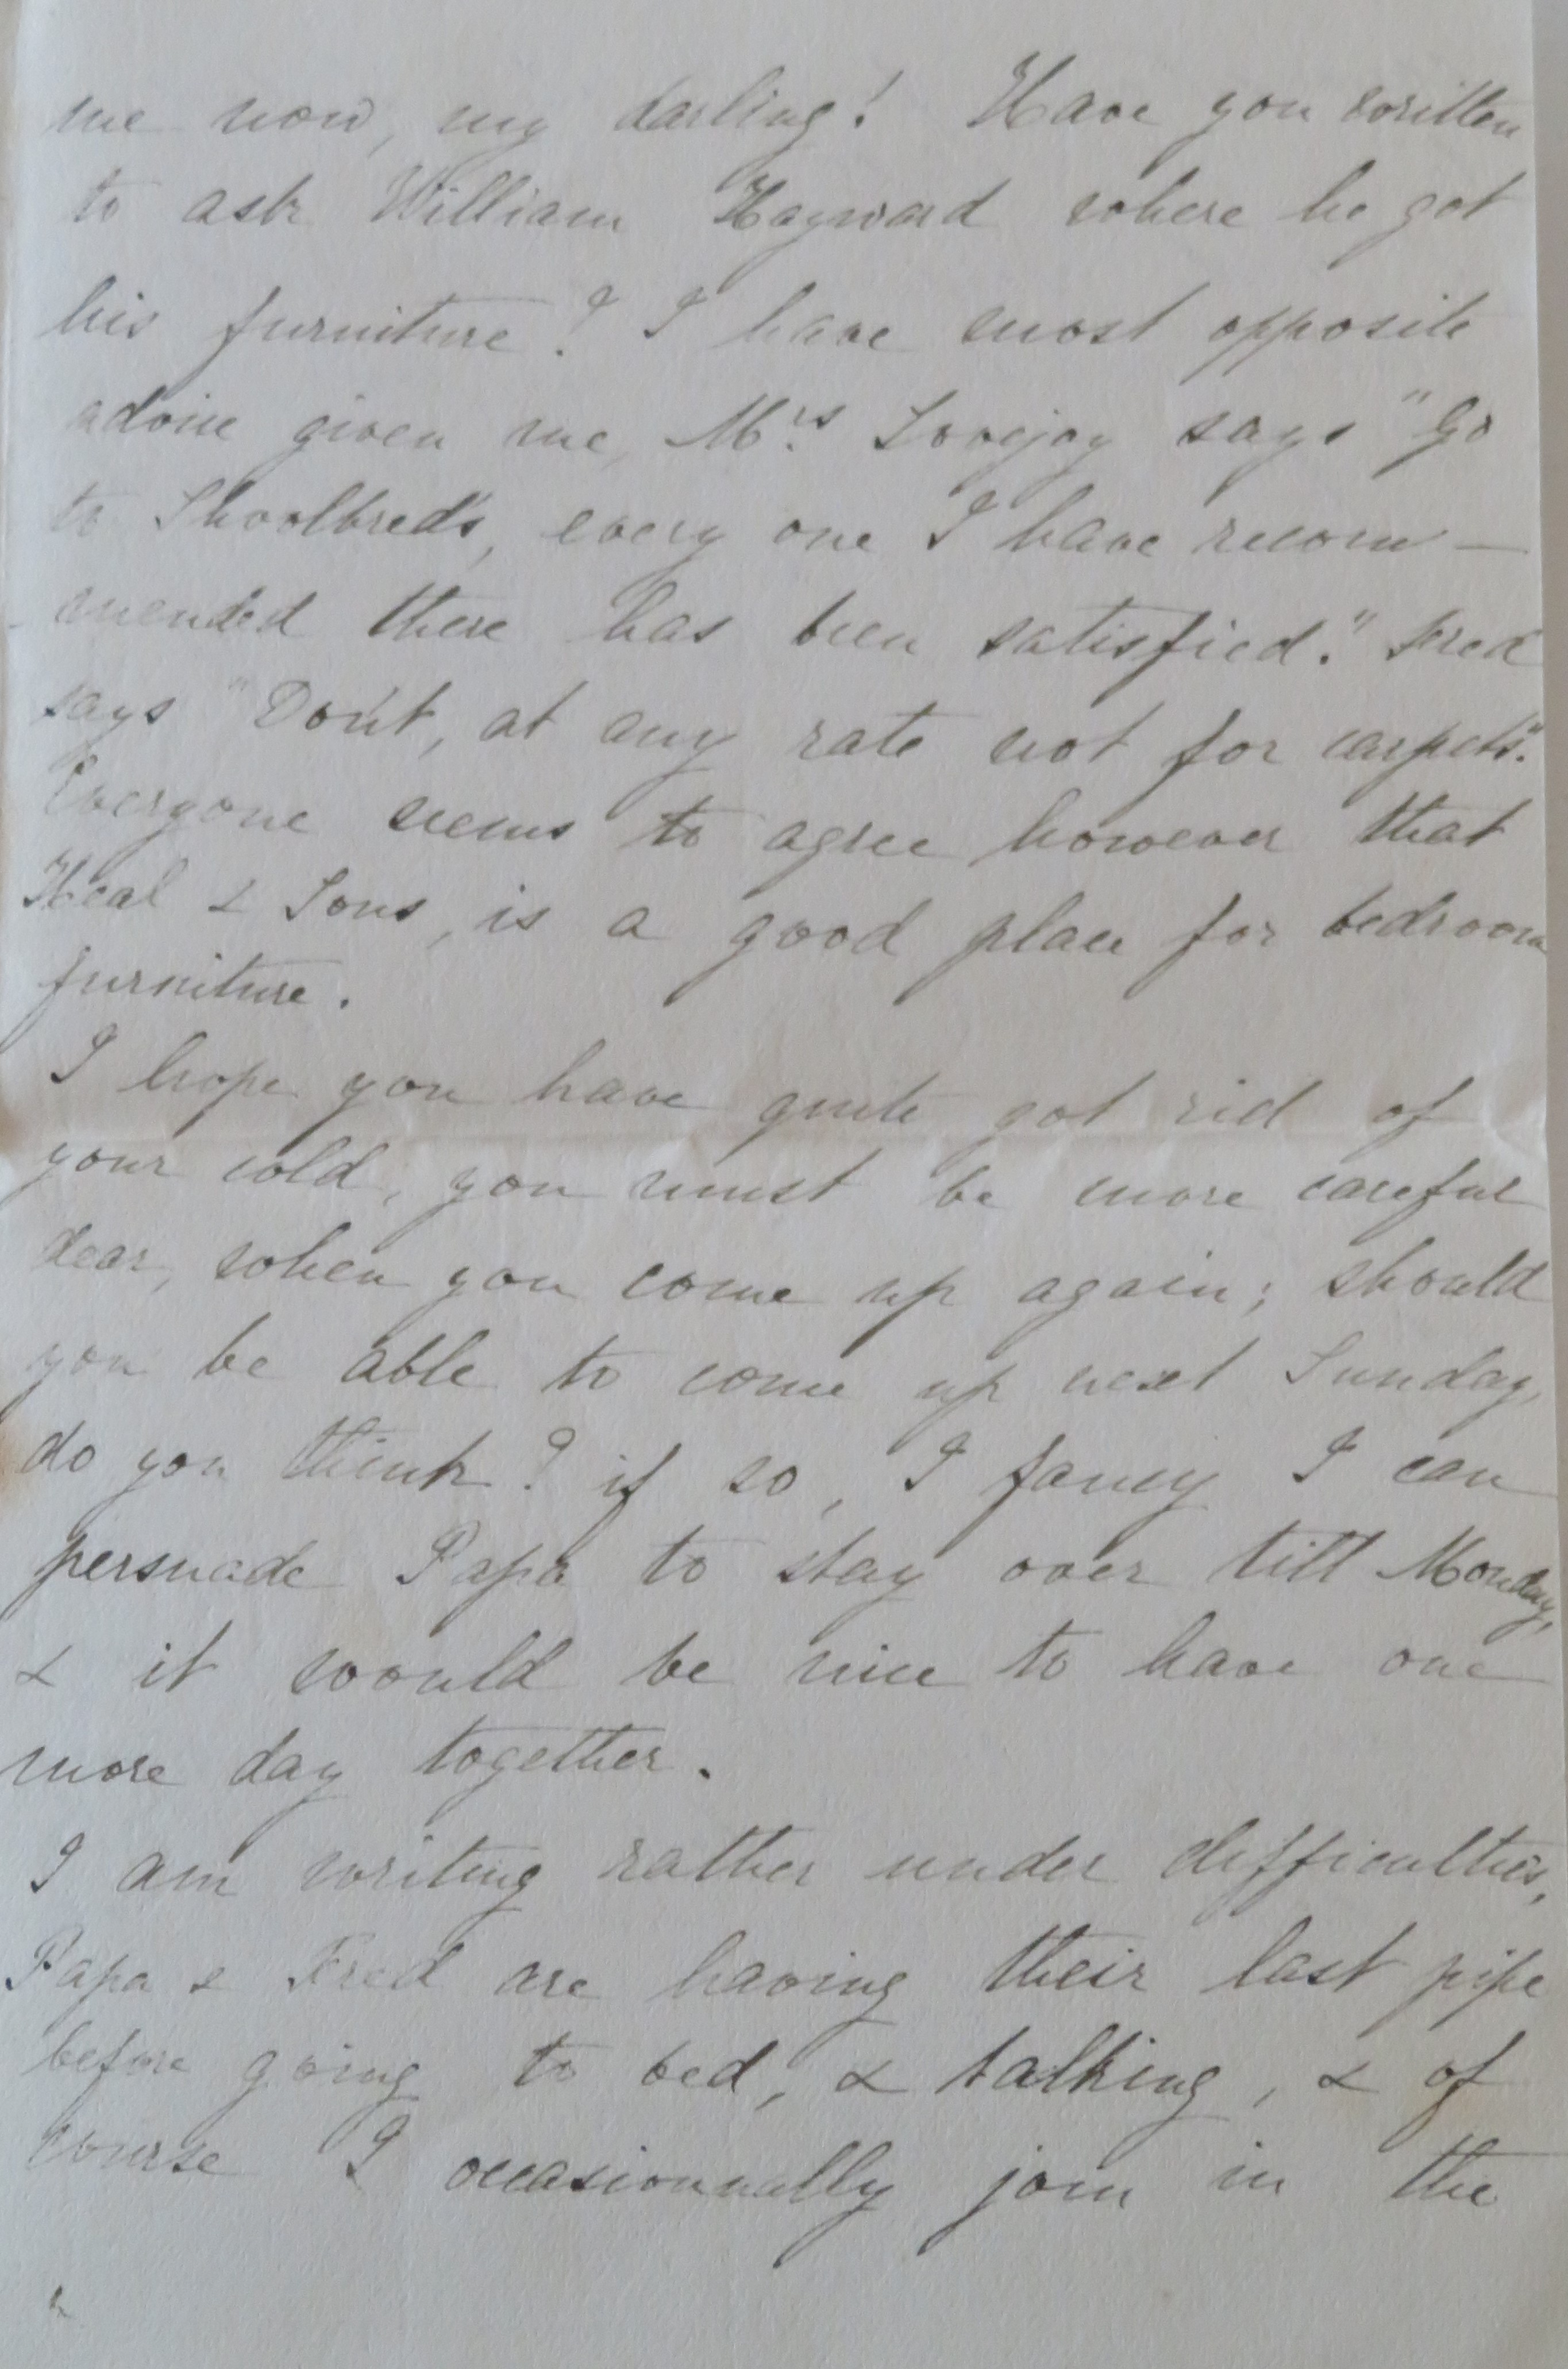 me now, my darling! Have you written
to ask William Hayward where he got
his furniture? I have most opposite
advice given me, Mrs Lovejoy says "Go
to Shoolbred's, every one I have recom-
mended there has been satisfied." Fred
says "Don't, at any rate not for carpets".
Everyone seems to agree however that
Heal & Sons, is a good place for bedroom
furniture.
I hope you have quite got rid of
your cold, you must be more careful
dear, when you come up again; should
you be able to come up next Sunday,
do you think? if so, I fancy I can
persuade Papa to stay over till Monday,
& it would be nice to have one
more day together.
I am writing rather under difficulties,
Papa & Fred are having their last pipe
before going to bed, & talking, & of
course I occasionnally join in the